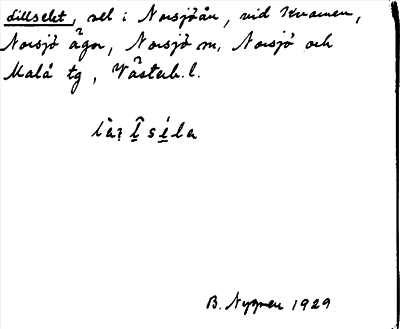 Lillselet, sel i Norsjöån, vid Kvarnen,
Norsjö ägor, Norsjö sn, Norsjö och
Malå tg, Västerb. l.
B. Nygren 1929